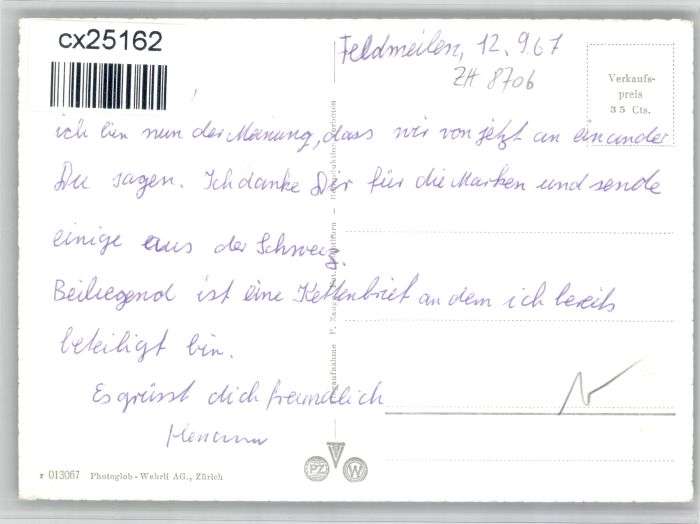 cx25162
Feldmeilen, 12.9.67
ZH 8706
Verkaufs-
preis
35 Cts.
ich bin nun der Meinung, dass wir von jetzt an einander
Du sagen. Ich danke Dir für die Marken und sende
einige aus der Schweiz.
Beiliegend ist eine Kettenbrief an dem ich bereits
beteiligt bin.
Es grüsst dich freundlich
Hermann
PZ W
r 013067 Photoglob-Wehrli AG., Zürich